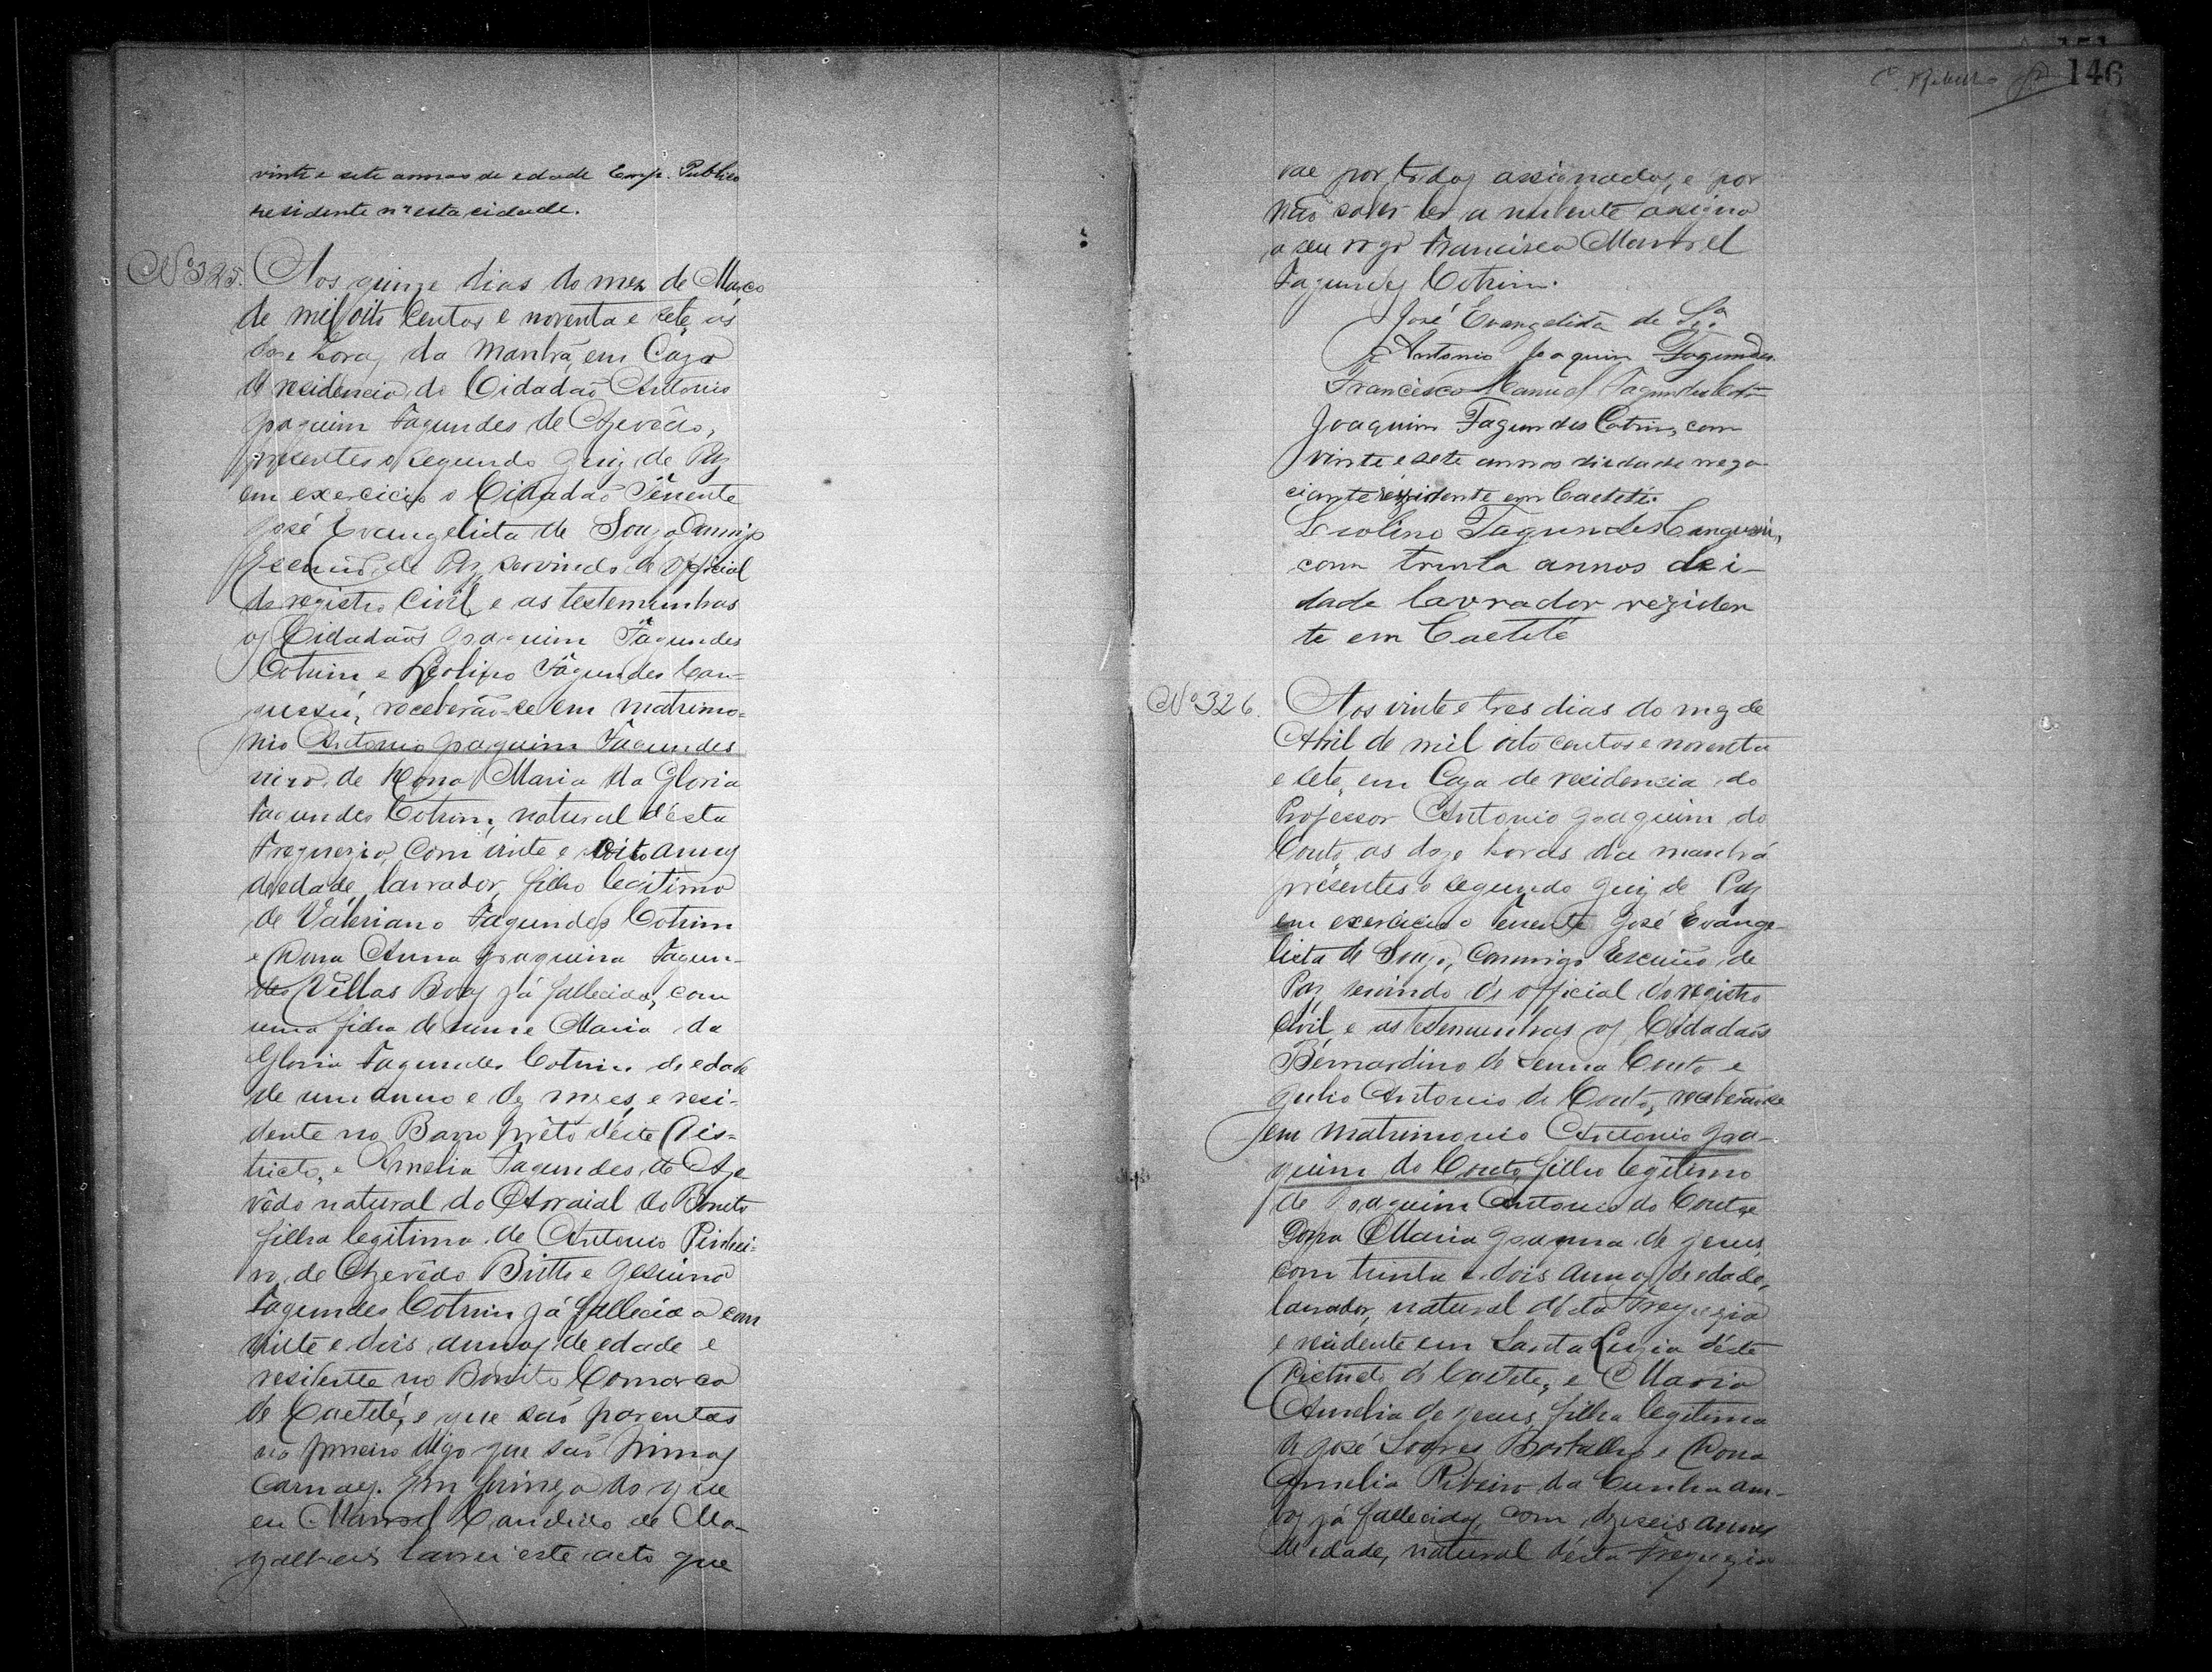 vinte e sete annos de edade Emp. Publico
residente n'esta cidade.
Nº 325. Aos quinze dias do mez de Março
de mil oito Centos e noventa e sete, ás
doze horas da manhã, em Caza
de residencia do Cidadaõ Antonio
Joaquim Fagundes de Azevêdo,
presentes o segundo Juiz de Paz
em exercicio o Cidadaõ Tenente
José Evangelista de Souza Commigo
Escrivaõ de Paz servindo de official
do registro Civil e as testemunhas
os Cidadaõs Joaquim Fagundes
Cotrim e Leolino Fagundes Can=
gussú, receberaõ-se em matrimo=
nio Antonio Joaquim Fagundes
viuvo de Dona Maria da Gloria
Fagundes Cotrim, natural d'ésta
Freguezia, Com vinte e oito annos
de edade, lavrador, filho legitimo
de Valeriano Fagundes Cotrim
e Dona Anna Joaquina Fagun-
des Villas Boas já fallecida, com
uma filha de nome Maria da
Gloria Fagundes Cotrim de edade
de um anno e dez mezes, e resi-
dente no Barro prêto d'éste Dis=
tricto, e Amelia Fagundes de Aze-
vêdo natural do Arraial do Bonito
filha legitima de Antonio Pinhei-
ro de Azevêdo Britto e Jesuina
Fagundes Cotrim já fallecida com
vinte e dois annos de edade e
residente no Bonito Comarca
de Caetité, e que saõ parentes
no primeiro digo que saõ primos
Carnaes. Em firmeza do que
eu Manoel Candido de Ma-
galhaẽs lavrei este acto que
146
vae por todos assignados, e por
naõ saber ler a nubente assigna
a seu rogo Francisco Manoel
Fagundes Cotrim.
José Evangelista de Sz.ª
Antonio Joaquim Fagundes
Francisco Manuel Fagundes Cotr
Joaquim Fagundes Cotrim, com
vinte e sete annos de edade nego
ciante rezidente em Caeteté.
Leolino Fagundes Cangussú,
com trinta annos de i-
dade lavrador reziden
te em Caetité
Nº 326. Aos vinte e tres dias do mez de
Abril de mil oito centos e noventa
e sete, em Caza de residencia do
Professor Antonio Joaquim do
Couto, as doze horas da manhã
presentes o segundo Juiz de Paz
em exercicio o Tenente José Evange-
lista de Souza, Commigo Escrivaõ de
Paz servindo de official do registro
Civil, e as testemunhas os Cidadaõs
Bernardino de Senna Couto e
Julio Antonio do Couto, receberaõ-se
em matrimonio Antonio Joa-
quim do Couto, filho legitimo
de Joaquim Antonio do Couto e
Dona Maria Joaquina de Jesus,
com trinta e dois annos de edade,
lavrador, natural d'ésta Freguezia
e residente em Santa Luzia d'éste
Districto de Caetité, e Maria
Amelia de Jesus, filha legitima
de José Soares e Dona
Amelia Ribeiro da Cunha am-
bos já fallecidos, com dezeseis annos
de edade, natural d'ésta Freguezia